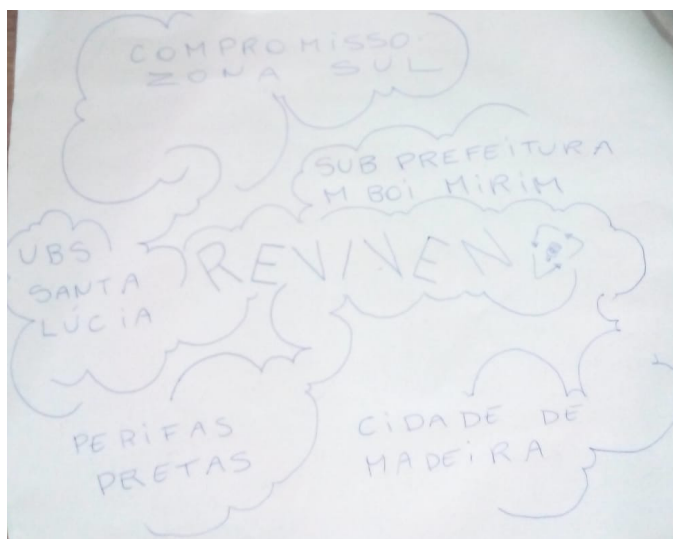 COMPROMISSO
ZONA SUL
SUB PREFEITURA
M BOI MIRIM
UBS
SANTA
LÚCIA
REVIVEN
PERIFAS
PRETAS
CIDADE DE
MADEIRA